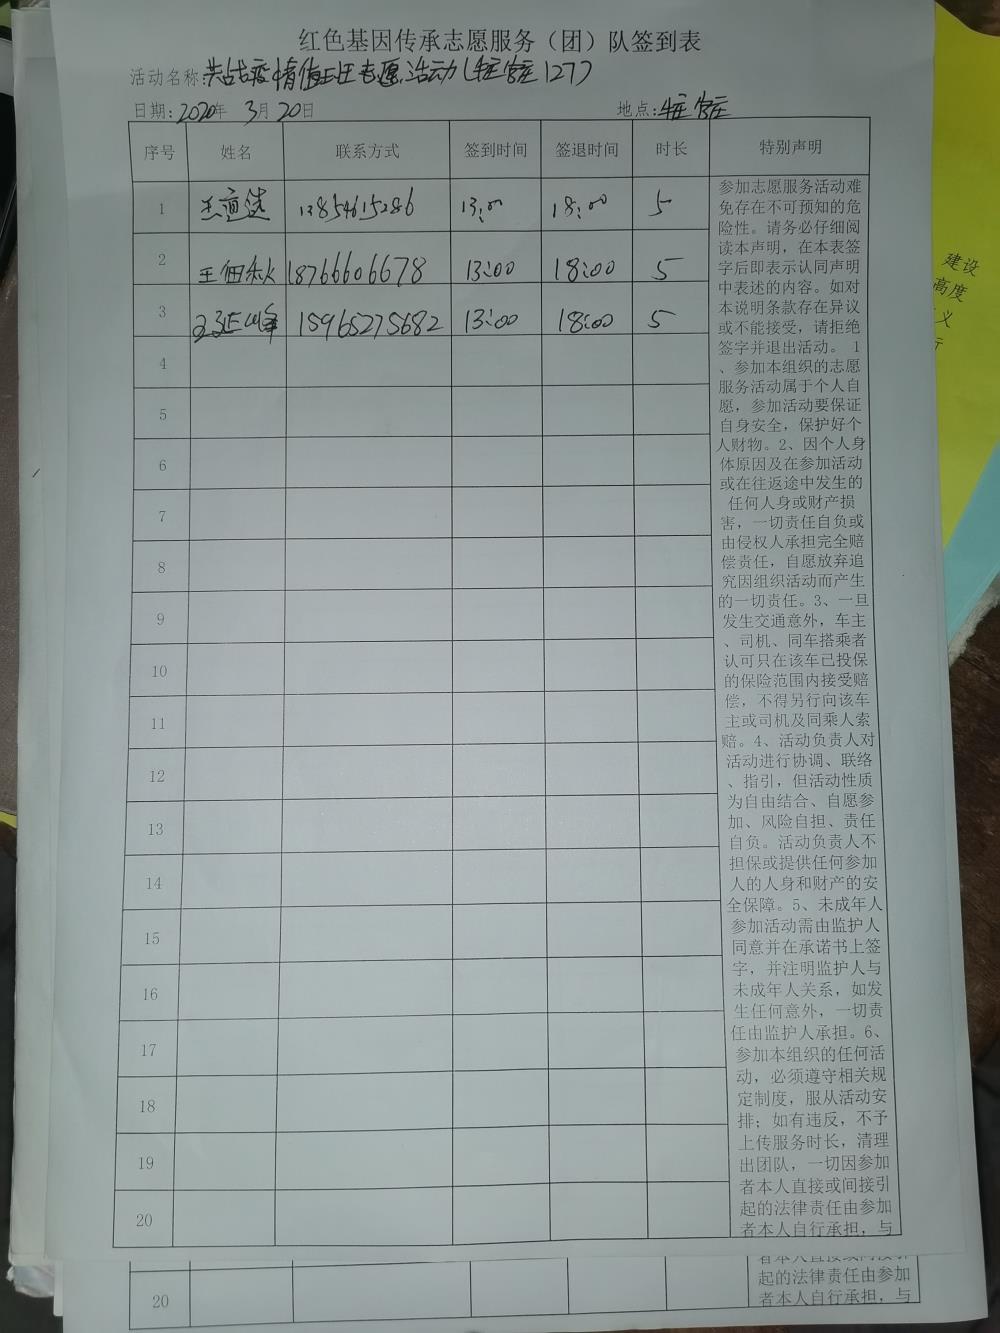 红色基因传承志愿服务（团）队签到表
活动名称:共战疫情值班志愿活动(牛庄官庄127)
日期:2020年 3月20日 地点:官庄
序号 姓名 联系方式 签到时间 签退时间 时长 特别声明
1 13854615286 13:00 18:00 5
2 王佃秋 18766606678 13:00 18:00 5
3 15965275682 13:00 18:00 5
4
5
6
7
8
9
10
11
12
13
14
15
16
17
18
19
20
参加志愿服务活动难
免存在不可预知的危
险性。请务必仔细阅
读本声明，在本表签
字后即表示认同声明
中表述的内容。如对
本说明条款存在异议
或不能接受，请拒绝
签字并退出活动。 1
、参加本组织的志愿
服务活动属于个人自
愿，参加活动要保证
自身安全，保护好个
人财物。2、因个人身
体原因及在参加活动
或在往返途中发生的
任何人身或财产损
害，一切责任自负或
由侵权人承担完全赔
偿责任，自愿放弃追
究因组织活动而产生
的一切责任。3、一旦
发生交通意外，车主
、司机、同车搭乘者
认可只在该车已投保
的保险范围内接受赔
偿，不得另行向该车
主或司机及同乘人索
赔。4、活动负责人对
活动进行协调、联络
、指引，但活动性质
为自由结合、自愿参
加、风险自担、责任
自负。活动负责人不
担保或提供任何参加
人的人身和财产的安
全保障。5、未成年人
参加活动需由监护人
同意并在承诺书上签
字，并注明监护人与
未成年人关系，如发
生任何意外，一切责
任由监护人承担。6、
参加本组织的任何活
动，必须遵守相关规
定制度，服从活动安
排；如有违反，不予
上传服务时长，清理
出团队，一切因参加
者本人直接或间接引
起的法律责任由参加
者本人自行承担，与
者本人直接或间接引
起的法律责任由参加
20 者本人自行承担，与
建设
高度
义
行